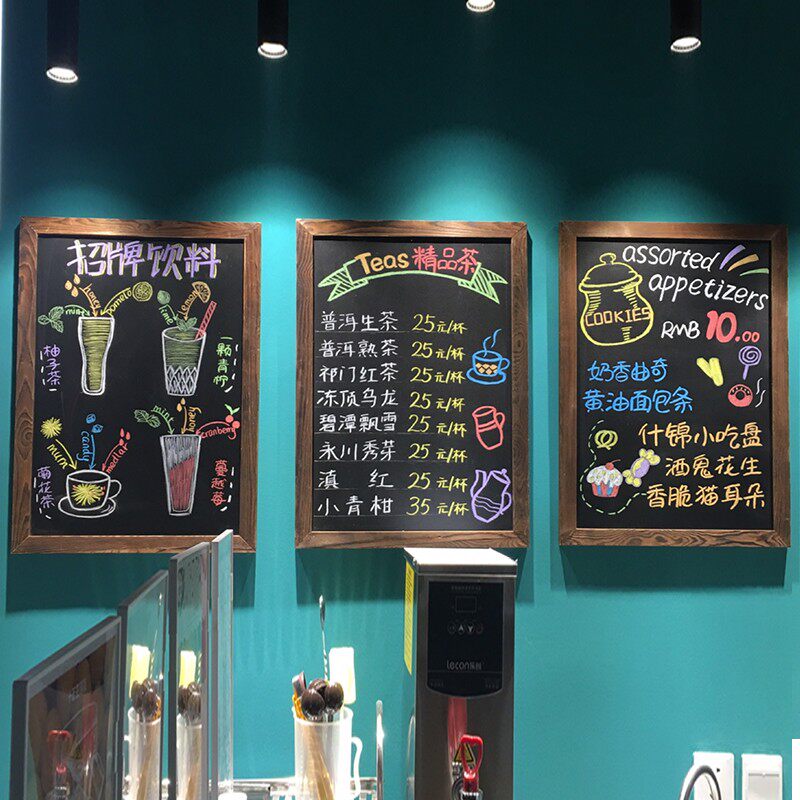 招牌饮料
mint
honey
pomelo
柚子茶
lime
lemon
一颗青柠
mum
candy
medlar
菊花茶
mint
honey
cranberry
蔓越莓
Teas 精品茶
普洱生茶 25元/杯
普洱熟茶 25元/杯
祁门红茶 25元/杯
冻顶乌龙 25元/杯
碧潭飘雪 25元/杯
永川秀芽 25元/杯
滇 红 25元/杯
小青柑 35元/杯
assorted
appetizers
COOKIES
RMB 10.00
奶香曲奇
黄油面包条
什锦小吃盘
酒鬼花生
香脆猫耳朵
lecon乐创